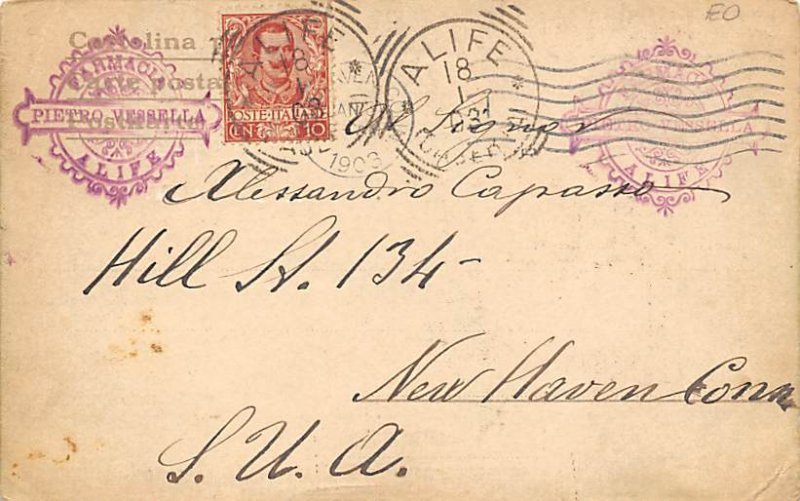 EO
Cartolina
FARMACIA
PIETRO VESSELLA
ALIFE
POSTE ITALIANE
CEN 10
ALIFE
18
1903
ALIFE
18
1
03
FARMACIA
PIETRO VESSELLA
ALIFE
Al Signor
Alessandro Capasso
Hill St. 134
New Haven Conn
S. U. A.